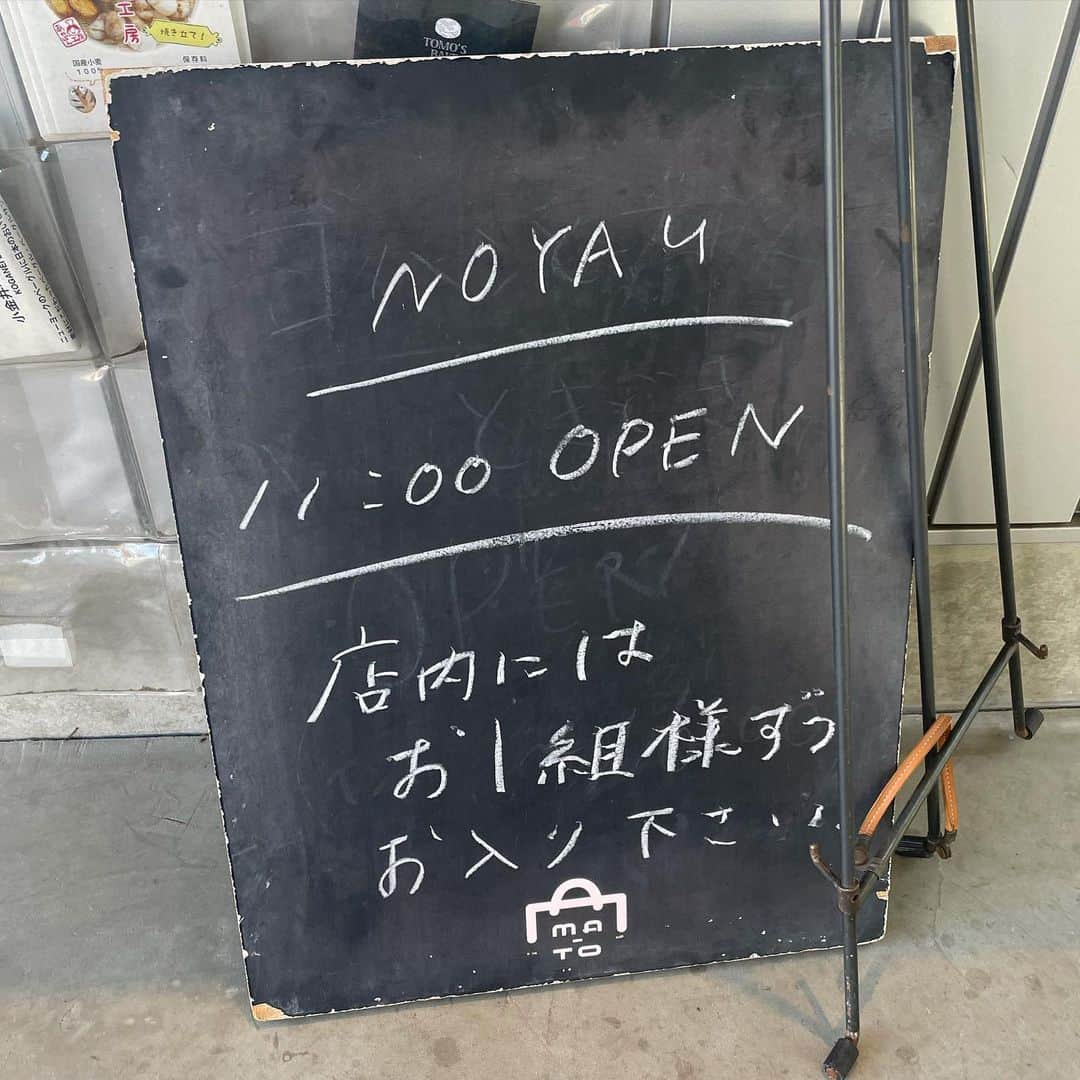 工房
焼き立て!
国産小麦
保存料
TOMO'S
小金井
NOYAU
11:00 OPEN
店内には
お1組様ずつ
お入り下さい。
MA
TO